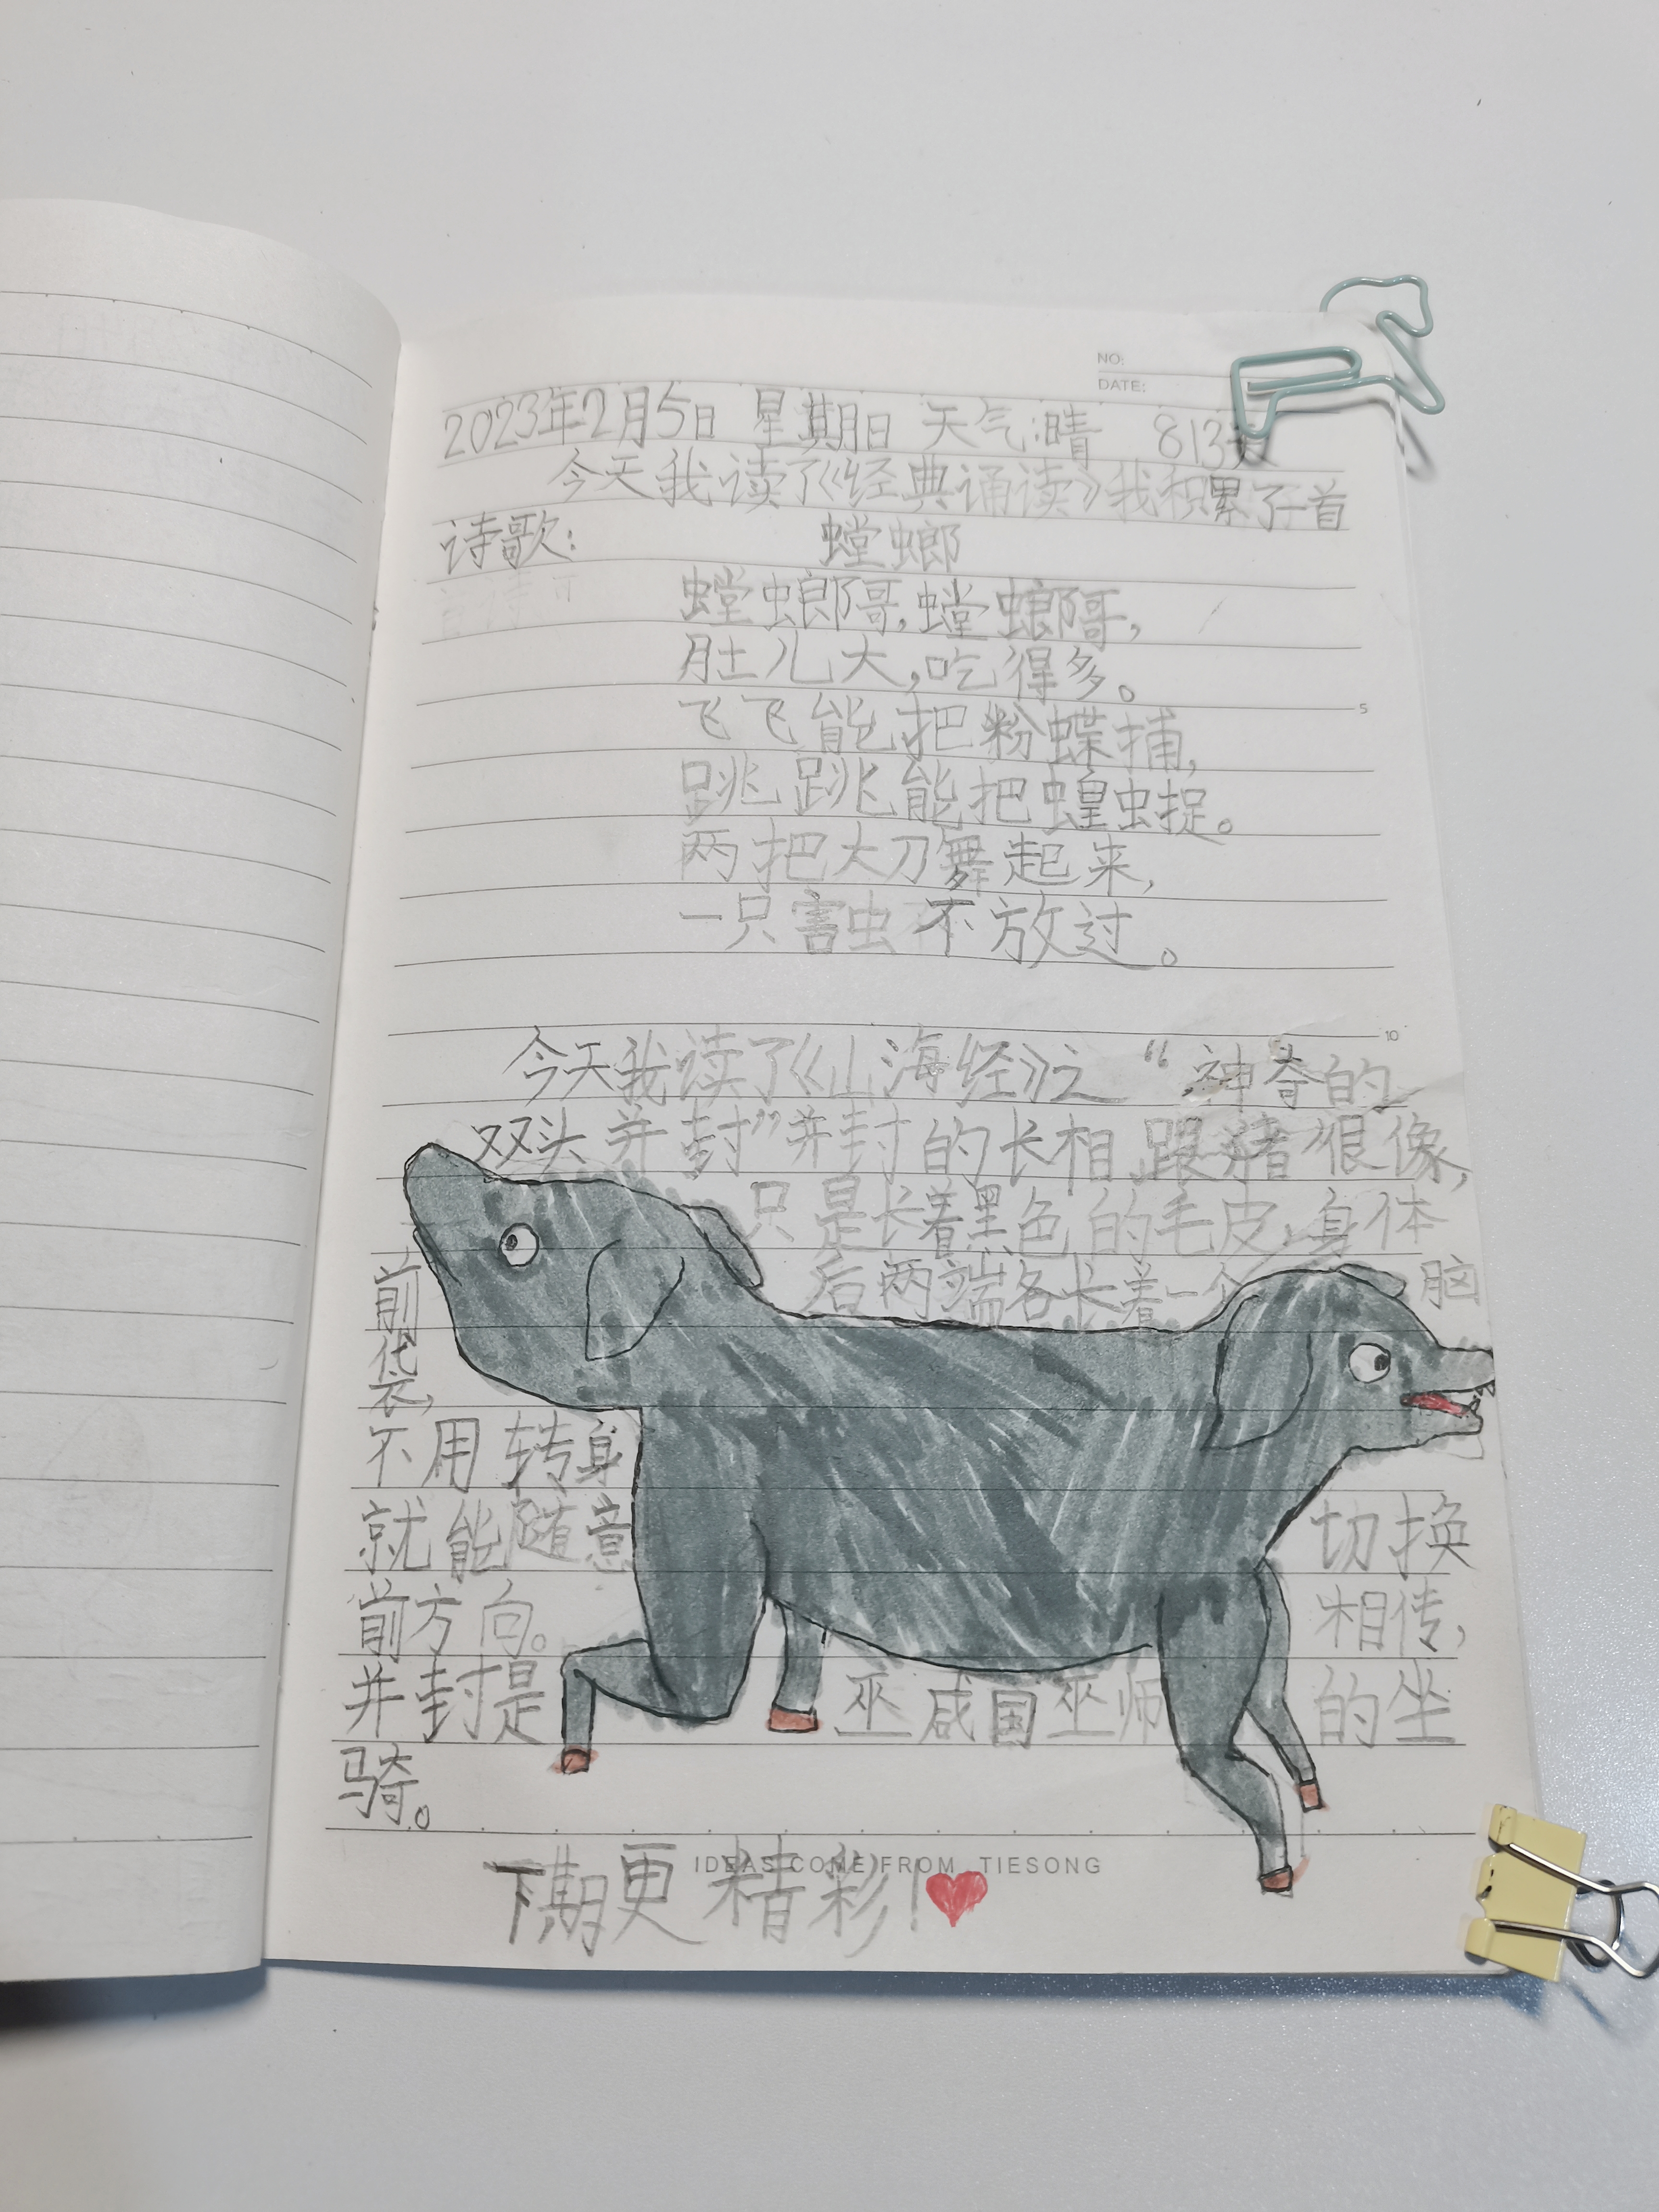 NO:
DATE:
2023年2月5日 星期日 天气:晴 813天
今天我读了《经典诵读》我积累了一首
诗歌:
螳螂
螳螂哥,螳螂哥,
肚儿大,吃得多。
飞飞能把粉蝶捕,
跳跳能把蝗虫捉。
两把大刀舞起来,
一只害虫不放过。
今天我读了《山海经》之“神奇的
双头并封”并封的长相跟猪很像,
只是长着黑色的毛皮,身体
前后两端各长着一个脑
袋,
不用转身
就能随意切换
前方向。相传,
并封是巫咸国巫师的坐
骑。
下期更精彩!
IDEAS COME FROM TIESONG
5
10